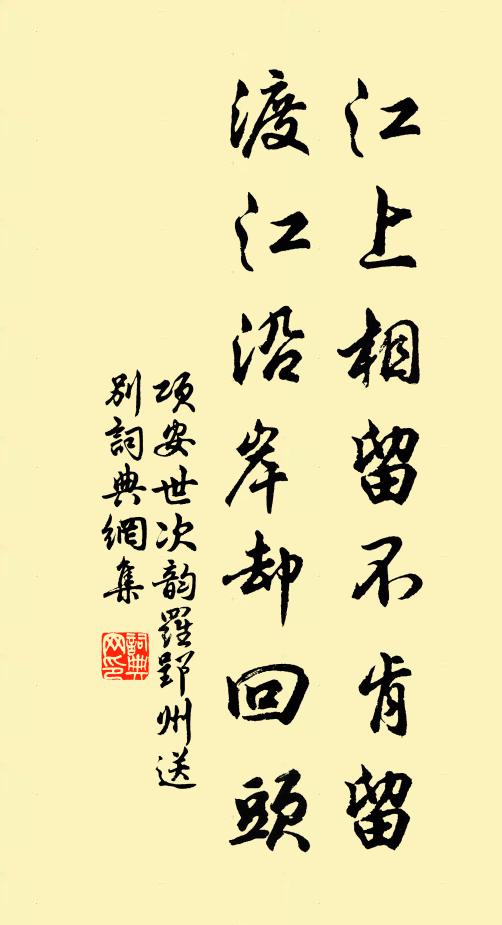 江上相留不肯留
渡江沿岸却回頭
項安世次韵羅郢州送
別詞典網集
詞典